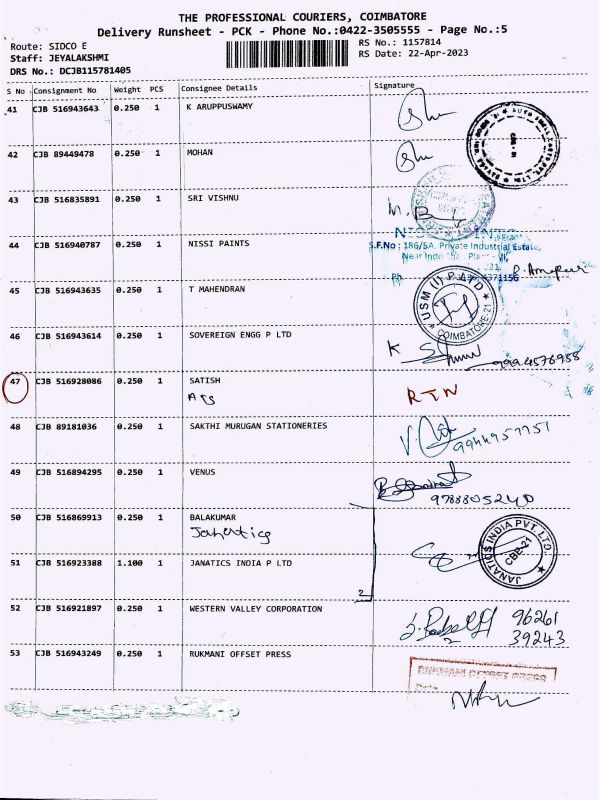 THE PROFESSIONAL COURIERS, COIMBATORE
Delivery Runsheet - PCK - Phone No.:0422-3505555 - Page No.:5
Route: SIDCO E
RS No.: 1157814
Staff: JEYALAKSHMI
RS Date: 22-Apr-2023
DRS No.: DCJB115781405
S No Consignment No Weight PCS Consignee Details Signature
41 CJB 516943643 0.250 1 K ARUPPUSWAMY
42 CJB 89449478 0.250 1 MOHAN
43 CJB 516835891 0.250 1 SRI VISHNU
44 CJB 516940787 0.250 1 NISSI PAINTS
S.F.No : 186/5A, Private Industrial Estate,
45 CJB 516943635 0.250 1 T MAHENDRAN
USM (I) P LTD
COIMBATORE-21
46 CJB 516943614 0.250 1 SOVEREIGN ENGG P LTD
9994576958
47 CJB 516928086 0.250 1 SATISH
RTN
48 CJB 89181036 0.250 1 SAKTHI MURUGAN STATIONERIES
49 CJB 516894295 0.250 1 VENUS
9788805240
50 CJB 516869913 0.250 1 BALAKUMAR
51 CJB 516923388 1.100 1 JANATICS INDIA P LTD
JANATICS INDIA PVT. LTD.
CBE-21
2
52 CJB 516921897 0.250 1 WESTERN VALLEY CORPORATION
96261
39243
53 CJB 516943249 0.250 1 RUKMANI OFFSET PRESS
RUKMANI OFFSET PRESS